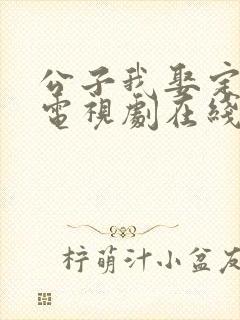 公子我娶定
電視劇在綫
柠萌汁小盆友